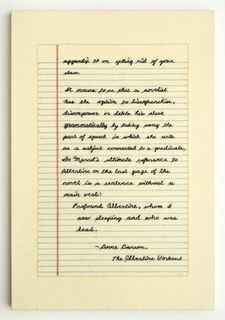 appendix 59 on getting rid of your
slave
It seems to me that a novelist
has the option to disenfranchise,
disempower or delete his slave
grammatically by taking away the
part of speech in which she acts
as a subject connected to a predicate.
So Marcel's ultimate reference to
Albertine on the last page of the
novel is a sentence without a
main verb:
Profound Albertine, whom I
saw sleeping and who was
dead.
-Anne Carson,
The Albertine Workout